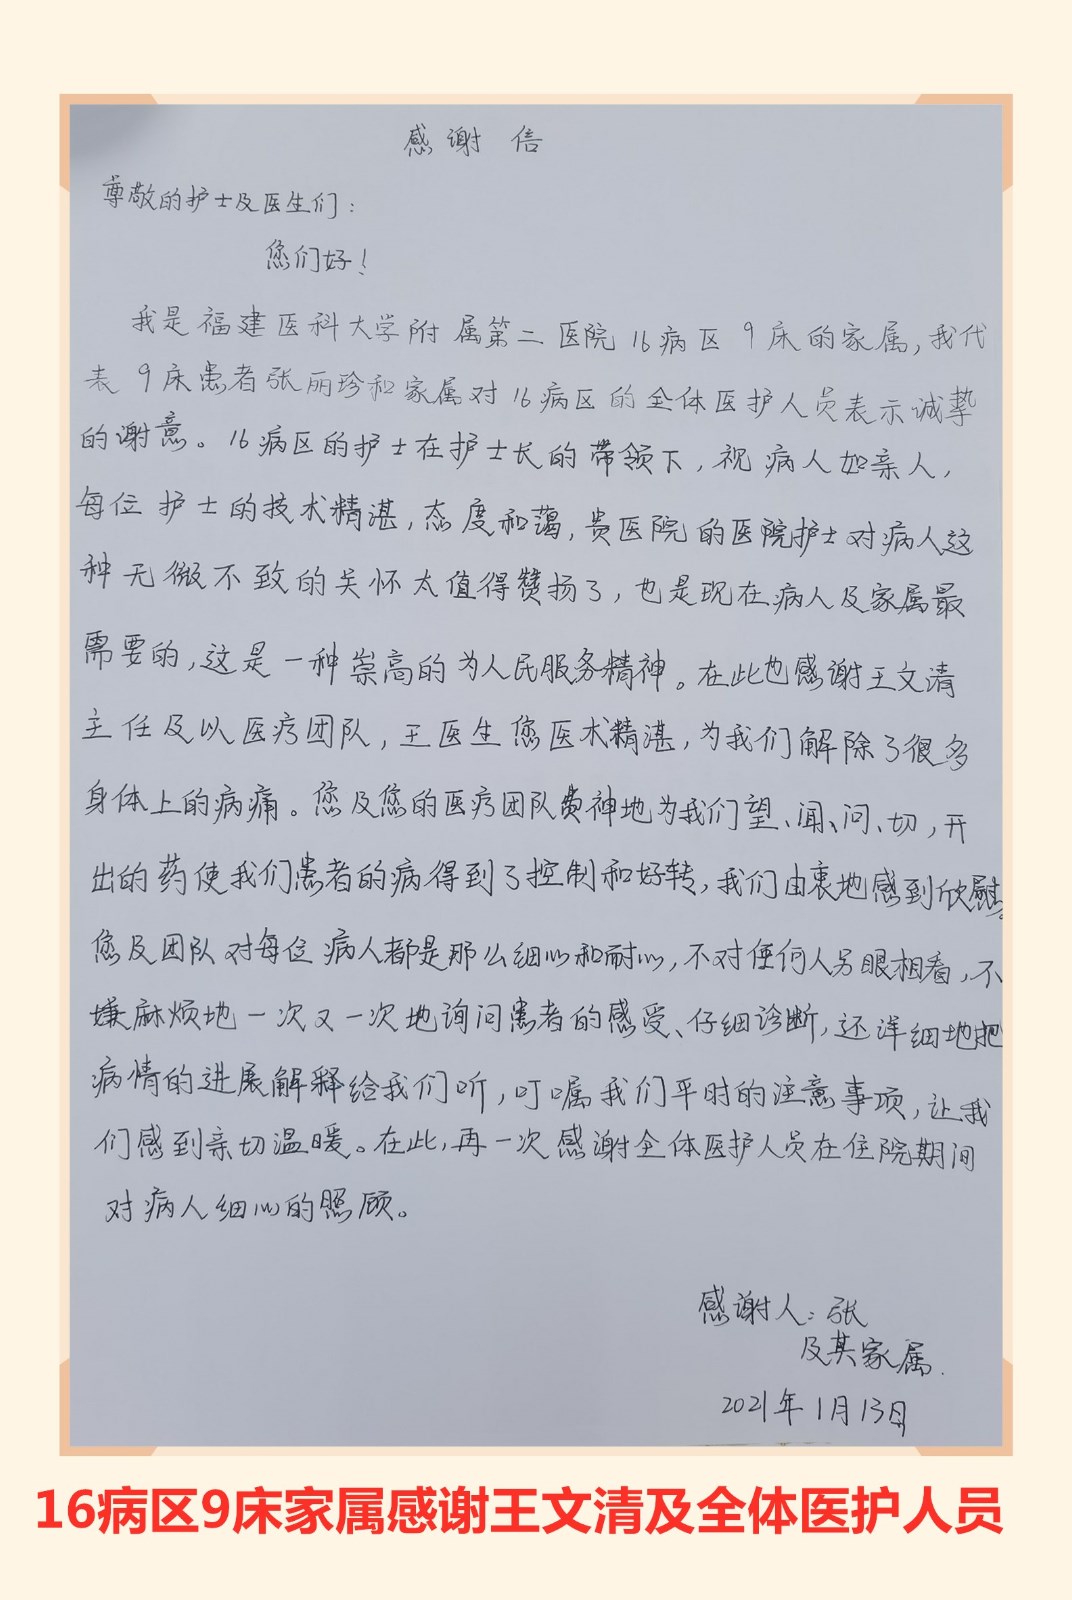 感谢信
尊敬的护士及医生们：
您们好！
我是福建医科大学附属第二医院16病区9床的家属，我代
表9床患者张丽珍和家属对16病区的全体医护人员表示诚挚
的谢意。16病区的护士在护士长的带领下，视病人如亲人，
每位护士的技术精湛，态度和蔼，贵医院的医院护士对病人这
种无微不致的关怀太值得赞扬了，也是现在病人及家属最
需要的，这是一种崇高的为人民服务精神。在此也感谢王文清
主任及以医疗团队，王医生您医术精湛，为我们解除了很多
身体上的病痛。您及您的医疗团队费神地为我们望、闻、问、切，开
出的药使我们患者的病得到了控制和好转，我们由衷地感到欣慰。
您及团队对每位病人都是那么细心和耐心，不对任何人另眼相看，不
嫌麻烦地一次又一次地询问患者的感受、仔细诊断，还详细地把
病情的进展解释给我们听，叮嘱我们平时的注意事项，让我
们感到亲切温暖。在此，再一次感谢全体医护人员在住院期间
对病人细心的照顾。
感谢人：张
及其家属.
2021年1月13日
16病区9床家属感谢王文清及全体医护人员